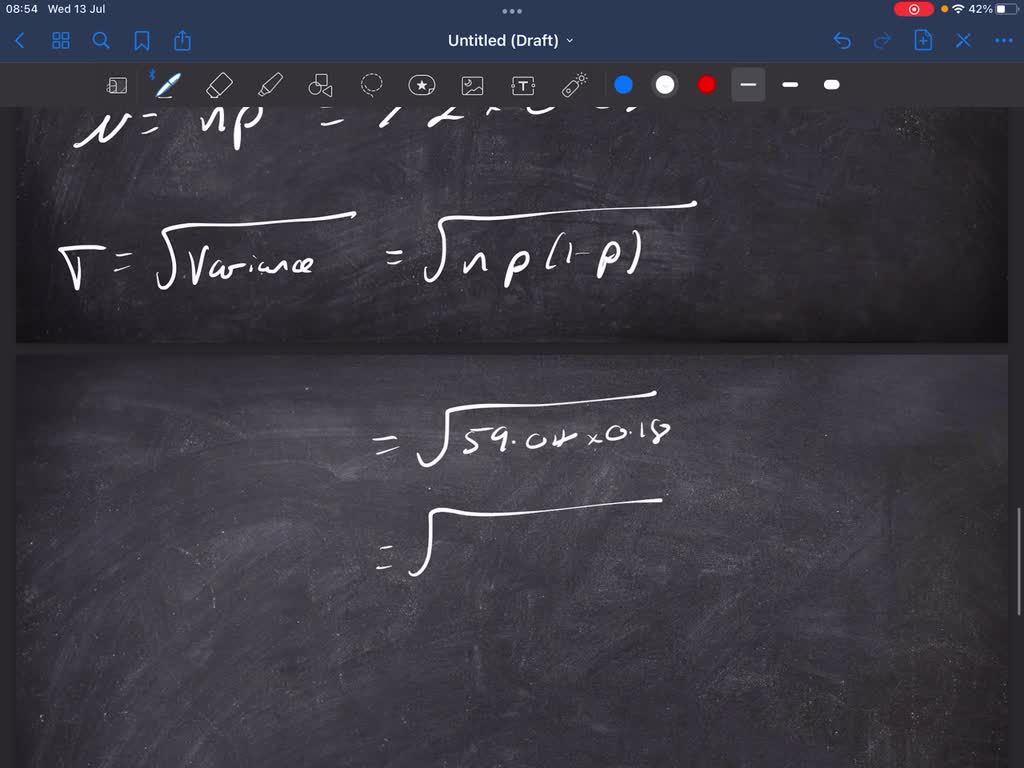 08:54 Wed 13 Jul 42%
Untitled (Draft)
T
μ = np =
σ = √Variance = √np(1-p)
= √59.04 × 0.18
= √